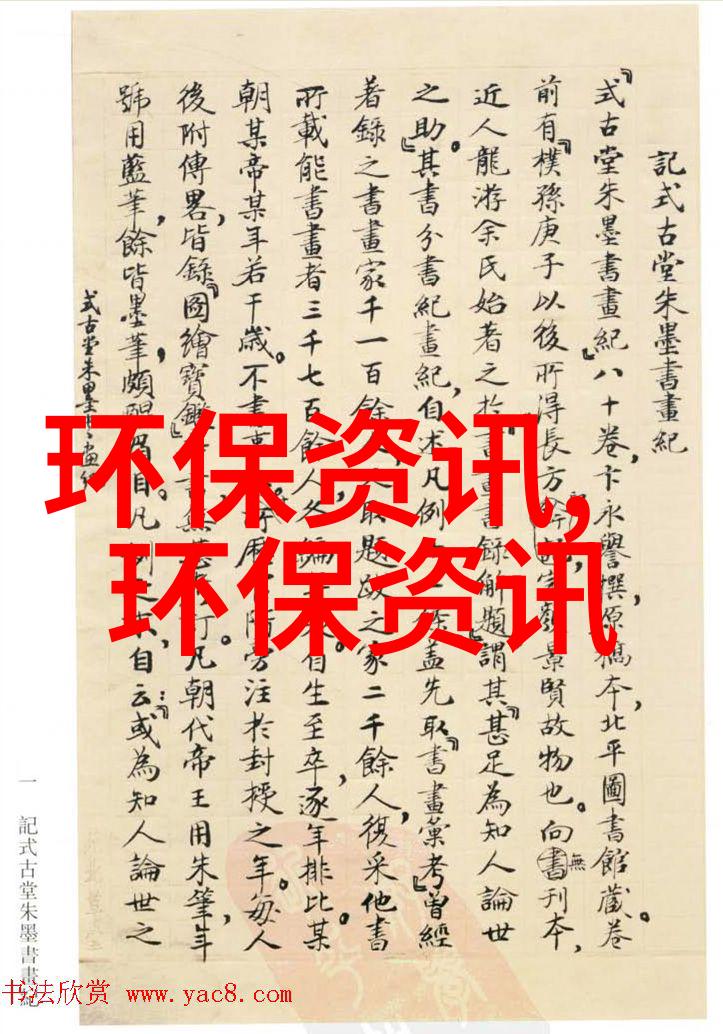 記式古堂朱墨書畫紀
『式古堂朱墨書畫紀』八十卷，卞永譽撰原稿本，北平圖書館藏。卷
前有『樸孫庚子以後所得』長方
景賢故物也。向無刊本，
近人龍游余氏始著之於『書畫書錄解題』，謂其『甚足為知人論世
之助。』其書分書紀畫紀，自述凡例
蓋先取『書畫彙考』曾經
著錄之書畫家千一百餘
取題跋之家二千餘人，復采他書
所載能書畫者三千七百餘人各編
自生至卒，逐年排比。某
朝某帝某年若干歲。不書
旁注於封授之年。每人
後附傳畧，皆錄『圖繪寶鑑』
凡朝代帝王用朱筆，年
號用藍筆，餘皆墨筆，頗醒眉目。凡
自云：『或為知人論世之
式古堂朱墨書畫紀
環保资讯,
环保资讯
一
記式古堂朱墨書畫紀
书法欣赏 www.yac8.com